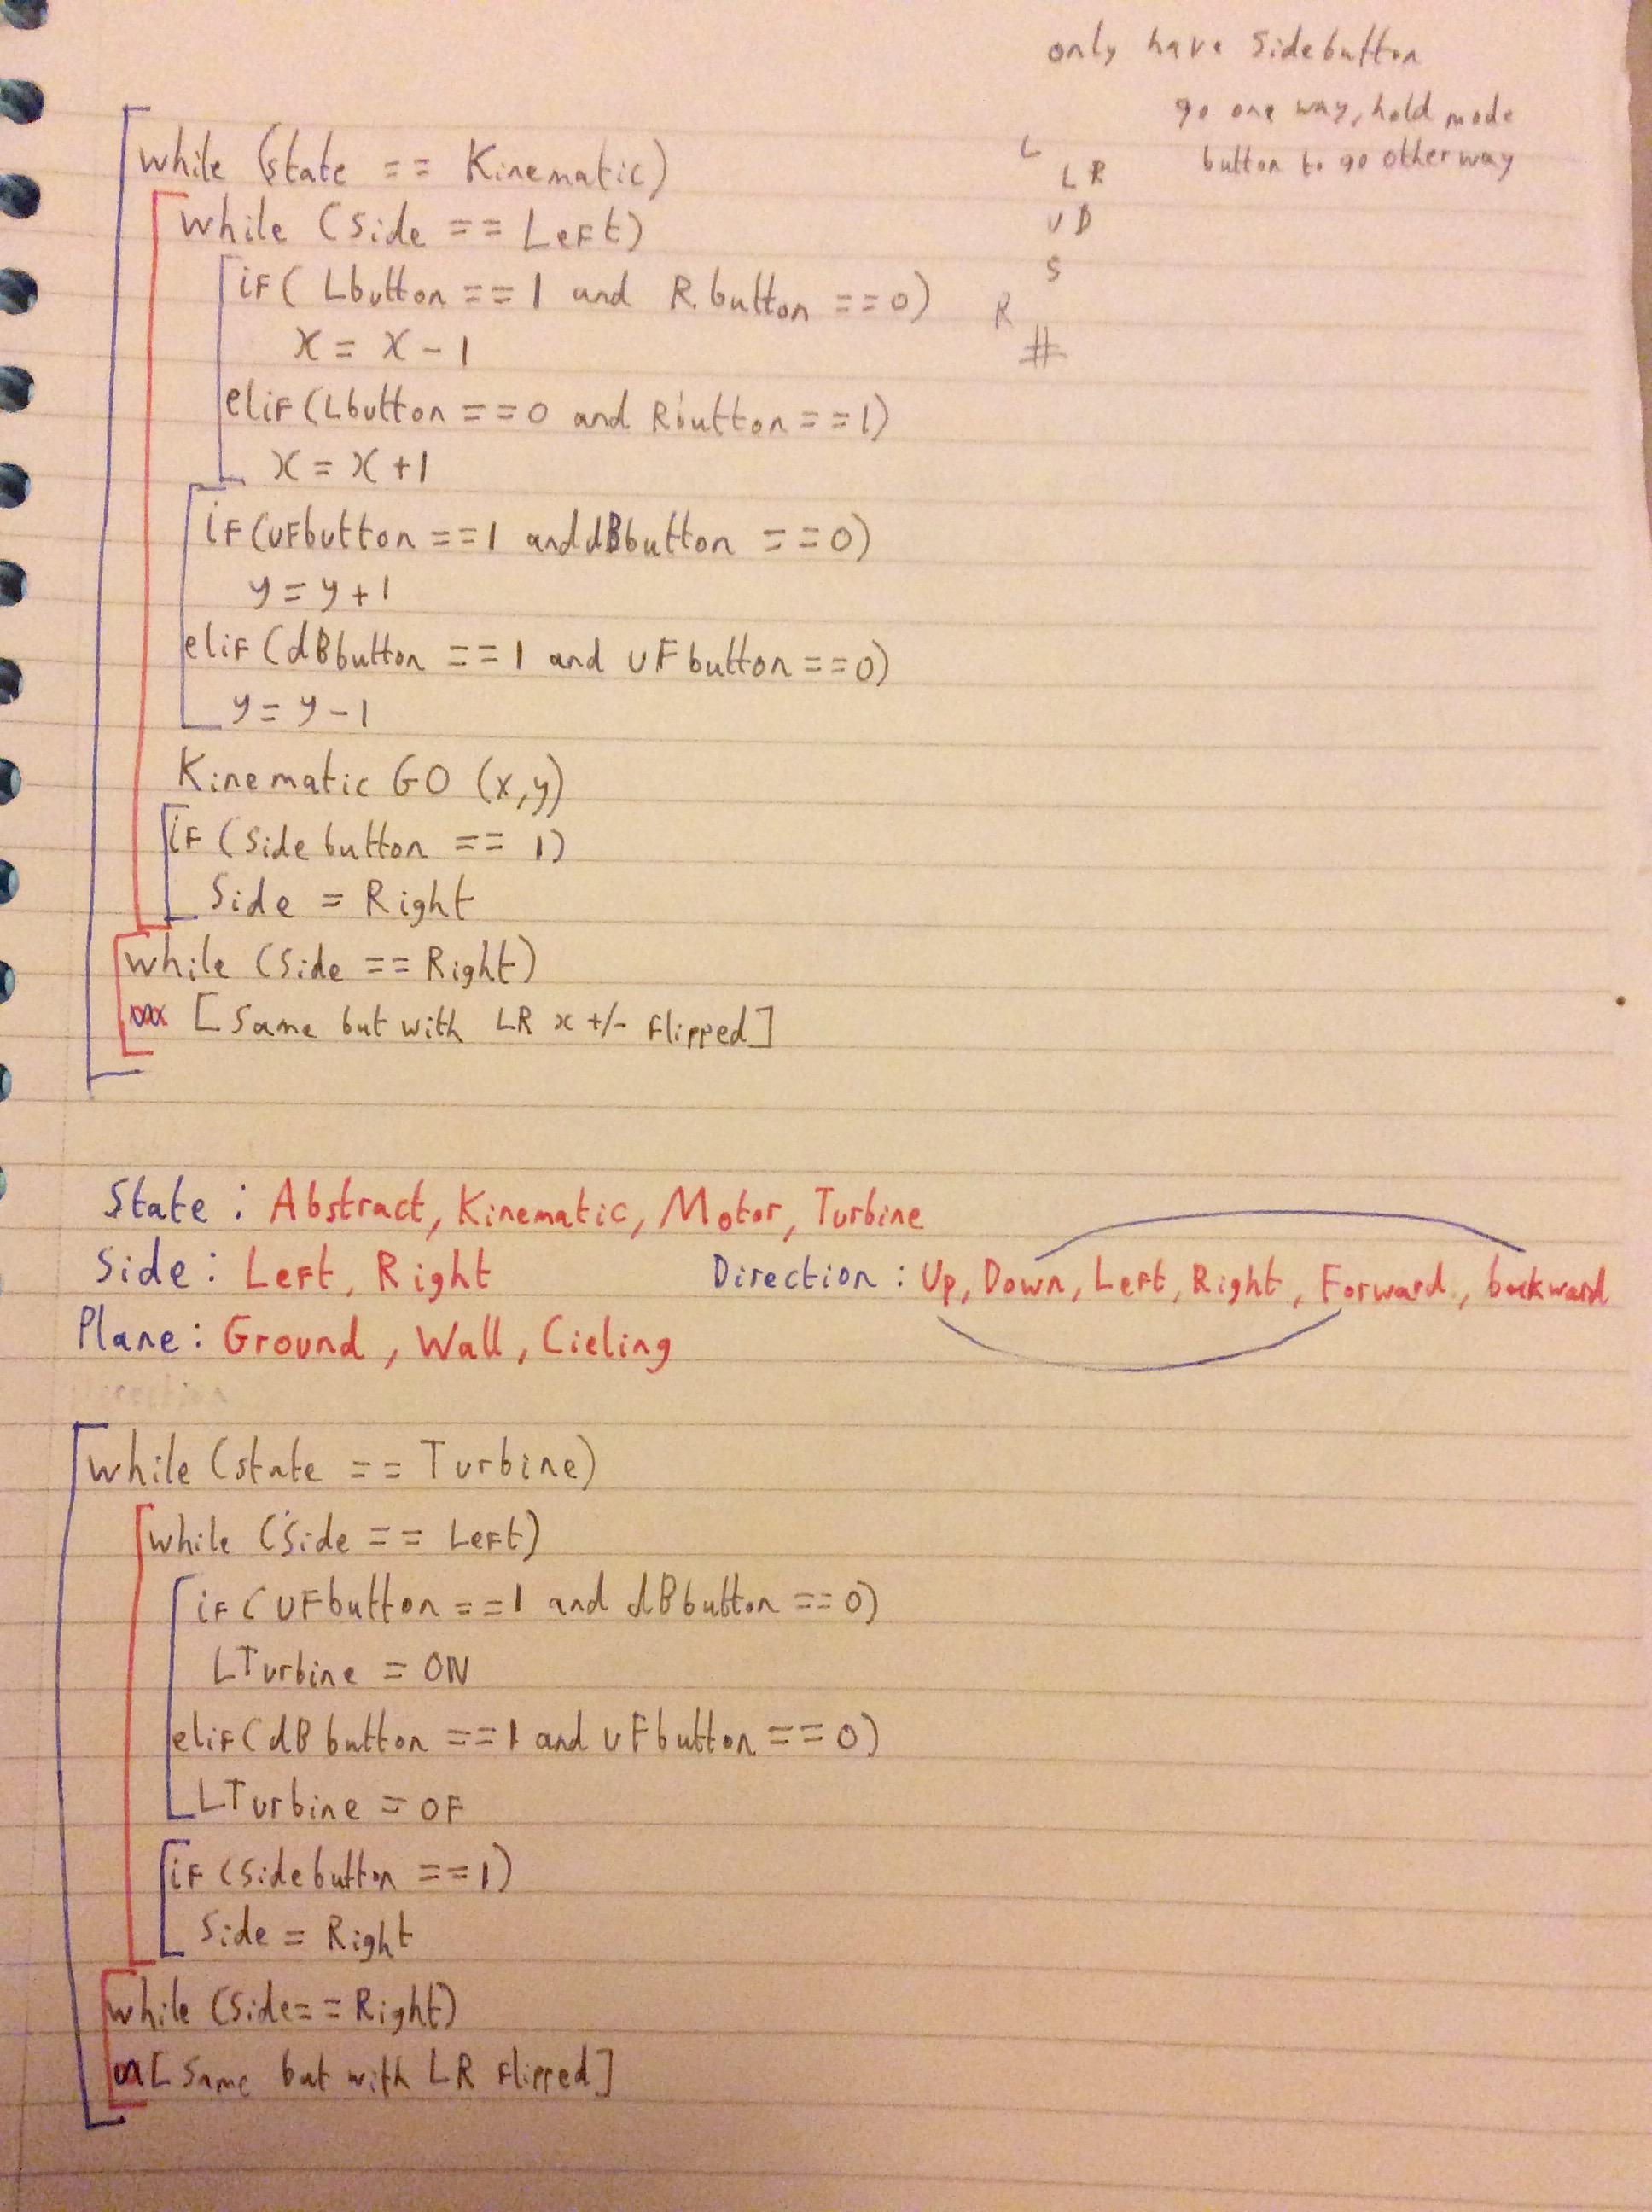 only have Sidebutton
go one way, hold mode
button to go other way
L
LR
UD
S
R
#
while (state == Kinematic)
while (Side == Left)
if( Lbutton == 1 and R.button == 0)
x = x - 1
elif(Lbutton == 0 and Rbutton == 1)
x = x + 1
if(uFbutton == 1 and dBbutton == 0)
y = y + 1
elif(dBbutton == 1 and uFbutton == 0)
y = y - 1
Kinematic GO (x,y)
if (Side button == 1)
Side = Right
while (Side == Right)
[Same but with LR x +/- flipped]
State: Abstract, Kinematic, Motor, Turbine
Side: Left, Right
Direction: Up, Down, Left, Right, Forward, backward
Plane: Ground, Wall, Cieling
Direction
while (state == Turbine)
while (Side == Left)
if (uFbutton == 1 and dBbutton == 0)
LTurbine = ON
elif(dBbutton == 1 and uFbutton == 0)
LTurbine = OF
if (Sidebutton == 1)
Side = Right
while (Side == Right)
[Same but with LR flipped]